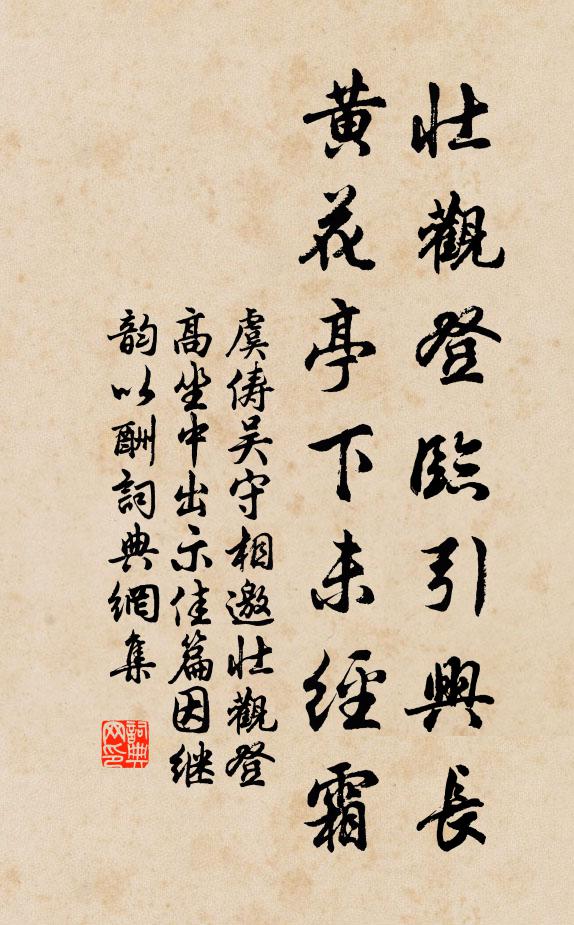 壮觀登臨引興長
黃花亭下未經霜
虞俦吴守相邀壮觀登
高坐中出示佳篇因继
韵以酬詞典網集
詞典网印